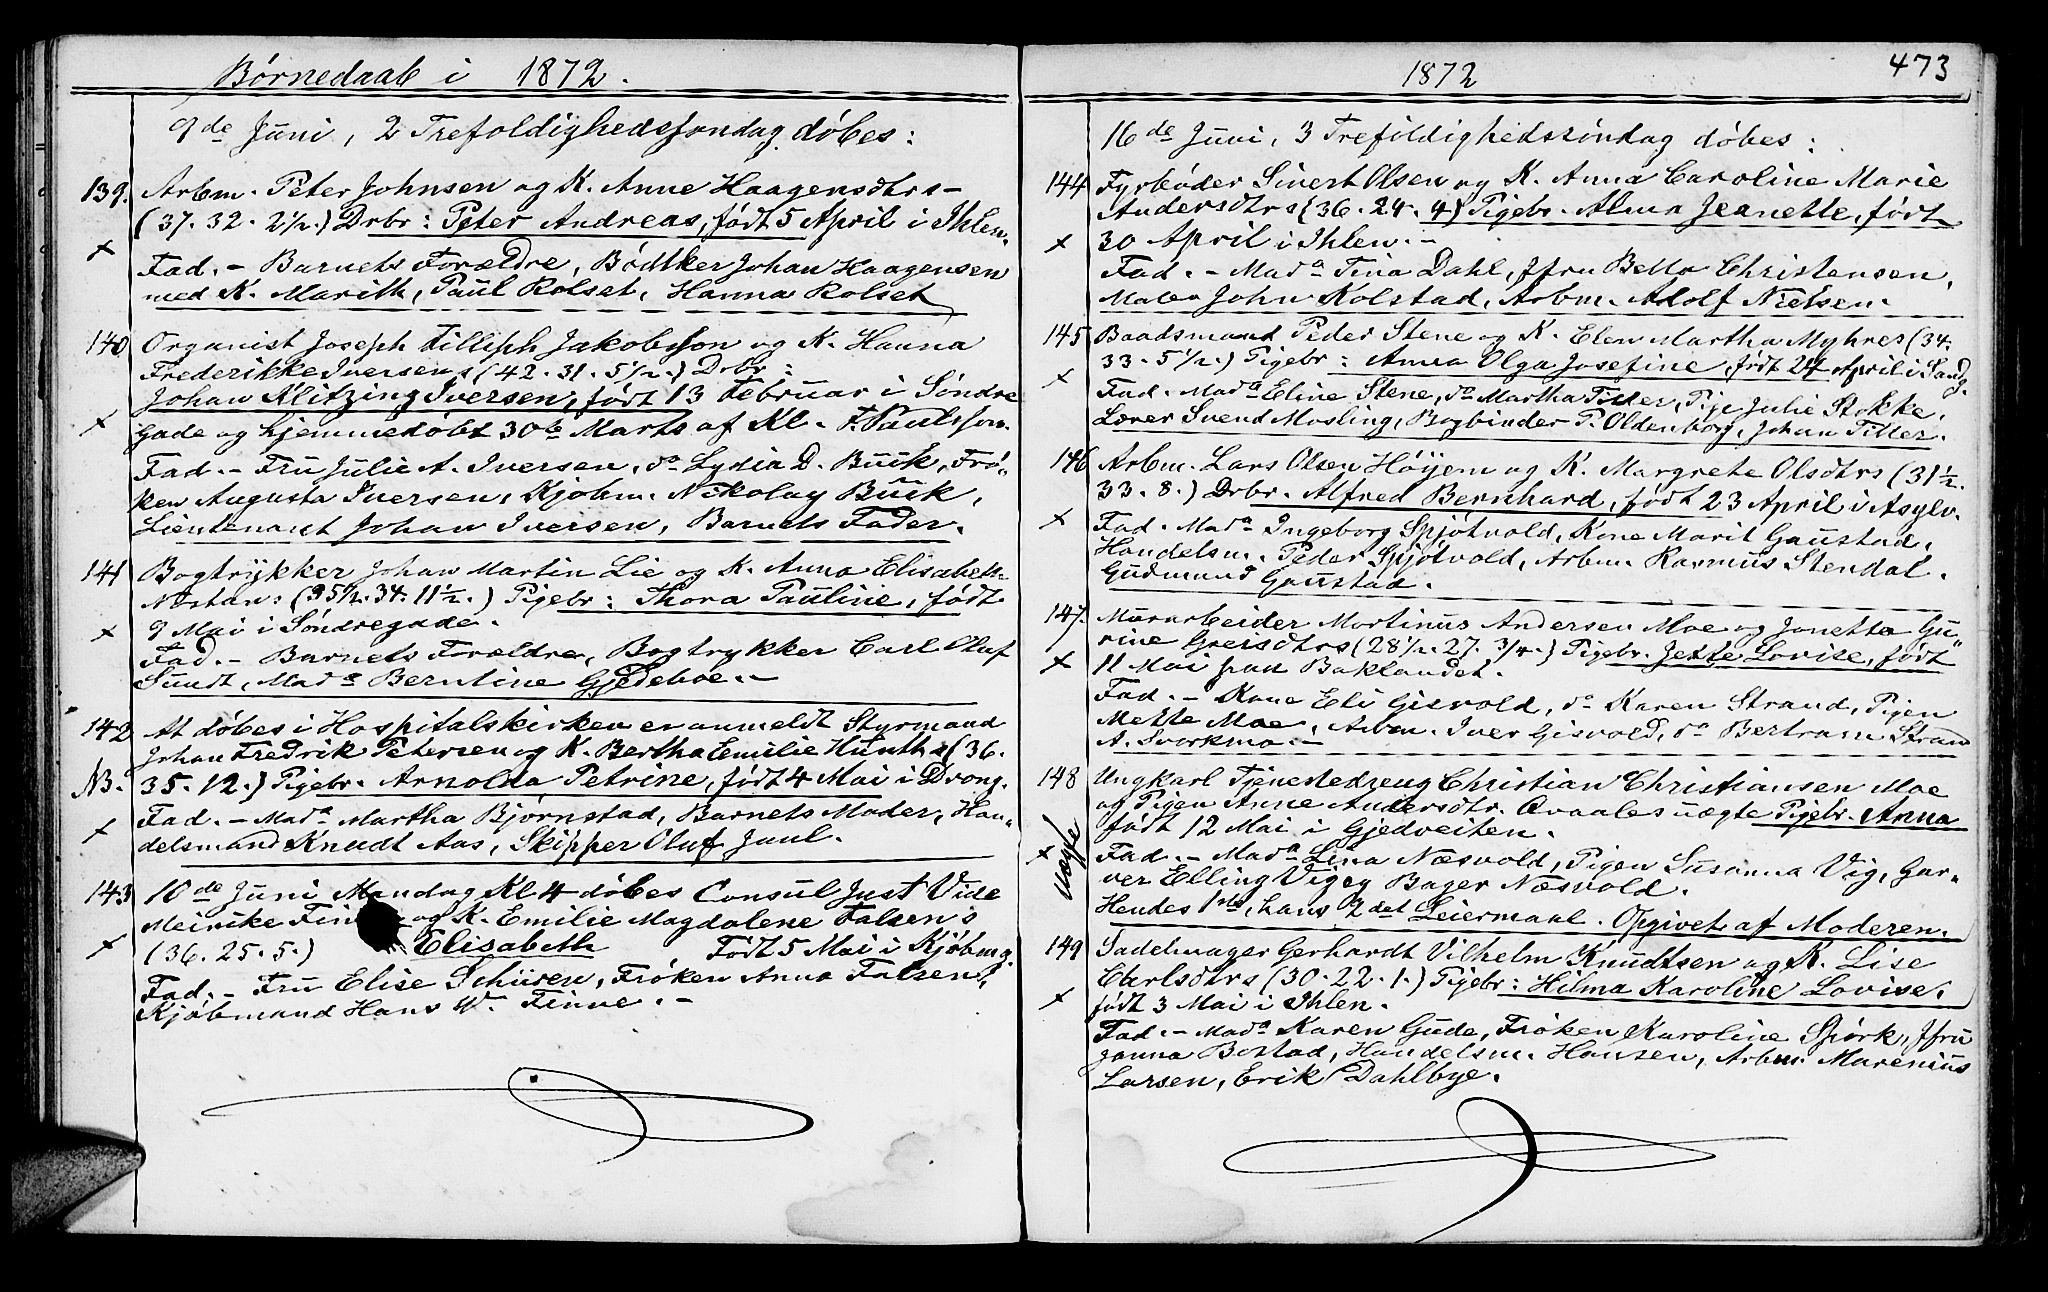 Børnedaab i 1872.
9de Juni, 2 Trefoldighedssøndag døbes:
139. Arbm. Peter Johnsen og K. Anne Haagensdtrs
(37. 32. 2½.) Drbr: Peter Andreas, født 5 April i Ihlen.
Fad. – Barnets Forældre, Bødtker Johan Haagensen
med K. Marith, Paul Rolset, Hanna Rolset
140 Organist Joseph Filliph Jakobsson og K. Hanna
Frederikke Iversens (42. 31. 5½.) Drbr:
Johan Klitzing Iversen, født 13 Februar i Søndre
gade og hjemmedøbt 30te Marts af Kl. F. Paulsson.
Fad. – Fru Julie A. Iversen, do Lydia D. Buck, Frø„
ken Augusta Iversen, Kjøbm. Nikolay Buck,
Lieutenant Johan Iversen, Barnets Fader.
141 Bogtrykker Johan Martin Lie og K. Anna Elisabeth
(35½. 34. 11½.) Pigebr: Thora Pauline, født
9 Mai i Søndregade.
Fad. – Barnets Forældre, Bogtrykker Carl Oluf
Sundt, Mada Berntine Gjedeboe. –
142 At døbes i Hospitalskirken er anmeldt Styrmand
Johan Fredrik Petersen og K. Bertha Emilie Hunths (36.
NB. 35. 12.) Pigebr. Arnolda Petrine, født 4 Mai i Drong.
Fad. – Mada Martha Bjørnstad, Barnets Moder, Han„
delsmand Knudt Aas, Skipper Oluf Juul.
143 10de Juni Mandag Kl 4 døbes Consul Just Vide
Meinike og K. Emilie Magdalene Falsen's
(36. 25. 5.) Elisabeth Født 5 Mai i Kjøbmg.
Fad. – Fru Elise Schüren, Frøken Anna Falsen,
Kjøbmand Hans W. Finne. –
1872
473
16de Juni, 3 Trefoldighedssøndag døbes:
144 Fyrbøder Sivert Olsen og K. Anna Caroline Marie
Andersdtrs (36. 24. 4) Pigebr. Alma Jeanette, født
30 April i Ihlen. –
Fad. – Mada Tina Dahl, Jfru Betta Christensen,
Maler John Kolstad, Arbm. Adolf Nielsen.
145 Baadsmand Peder Stene og K. Elen Martha Myhres (34.
33. 5½.) Pigebr: Anna Olga Josefine, født 24 April i Sandg.
Fad. Mada Eline Stene, do Martha Tiller, Pige Julie Stokke,
Lærer Svend Mosling, Bogbinder P. Oldenborg, Johan Tiller.
146 Arbm. Lars Olsen Höyem og K. Margrete Olsdtrs (31½.
33. 8.) Drbr. Alfred Bernhard, født 23 April i Asylv.
Fad. Mada Ingeborg Spjøtvold, Kone Marit Gaustad,
Handelsm. Peder Spjøtvold, Arbm. Rasmus Stendal.
Gudmund Gaustad.
147. Murarbeider Martinus Andersen Moe og Janetta Gu„
rine (28½. 27. ¾.) Pigebr. Jette Lovise, født
11 Mai paa Baklandet.
Fad. – Kone Eli Gisvold, do Karen Strand, Pigen
Mette Moe, Arbm. Iver Gisvold, do Bertram Strand
A. Svorkmo. –
148 Ungkarl Tjenestedreng Christian Christiansen Moe
og Pigen Anne Andersdtr. Qvaales uægte Pigebr. Anna
født 12 Mai i Gjedveiten.
Uægte
Fad. – Mada Lina Næsvold, Pigen Susanna Vig, Gar„
ver Elling Vig og Bager Næsvold.
Hendes 1ste, hans 2det Leiermaal. Opgivet af Moderen.
149 Sadelmager Gerhardt Vilhelm Knudtsen og K. Lise
Carlsdtrs (30. 22. 1.) Pigebr: Hilma Karoline Lovise,
født 3 Mai i Ihlen.
Fad. – Mada Karen Gude, Frøken Karoline Spørk, Jfru
Janna Bostad, Handelsm. Hansen, Arbm. Marenius
Larsen, Erik Dahlbye.